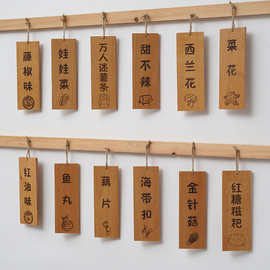 藤椒味
娃娃菜
万人迷薯条
甜不辣
西兰花
菜花
红油味
鱼丸
藕片
海带扣
金针菇
红糖糍粑